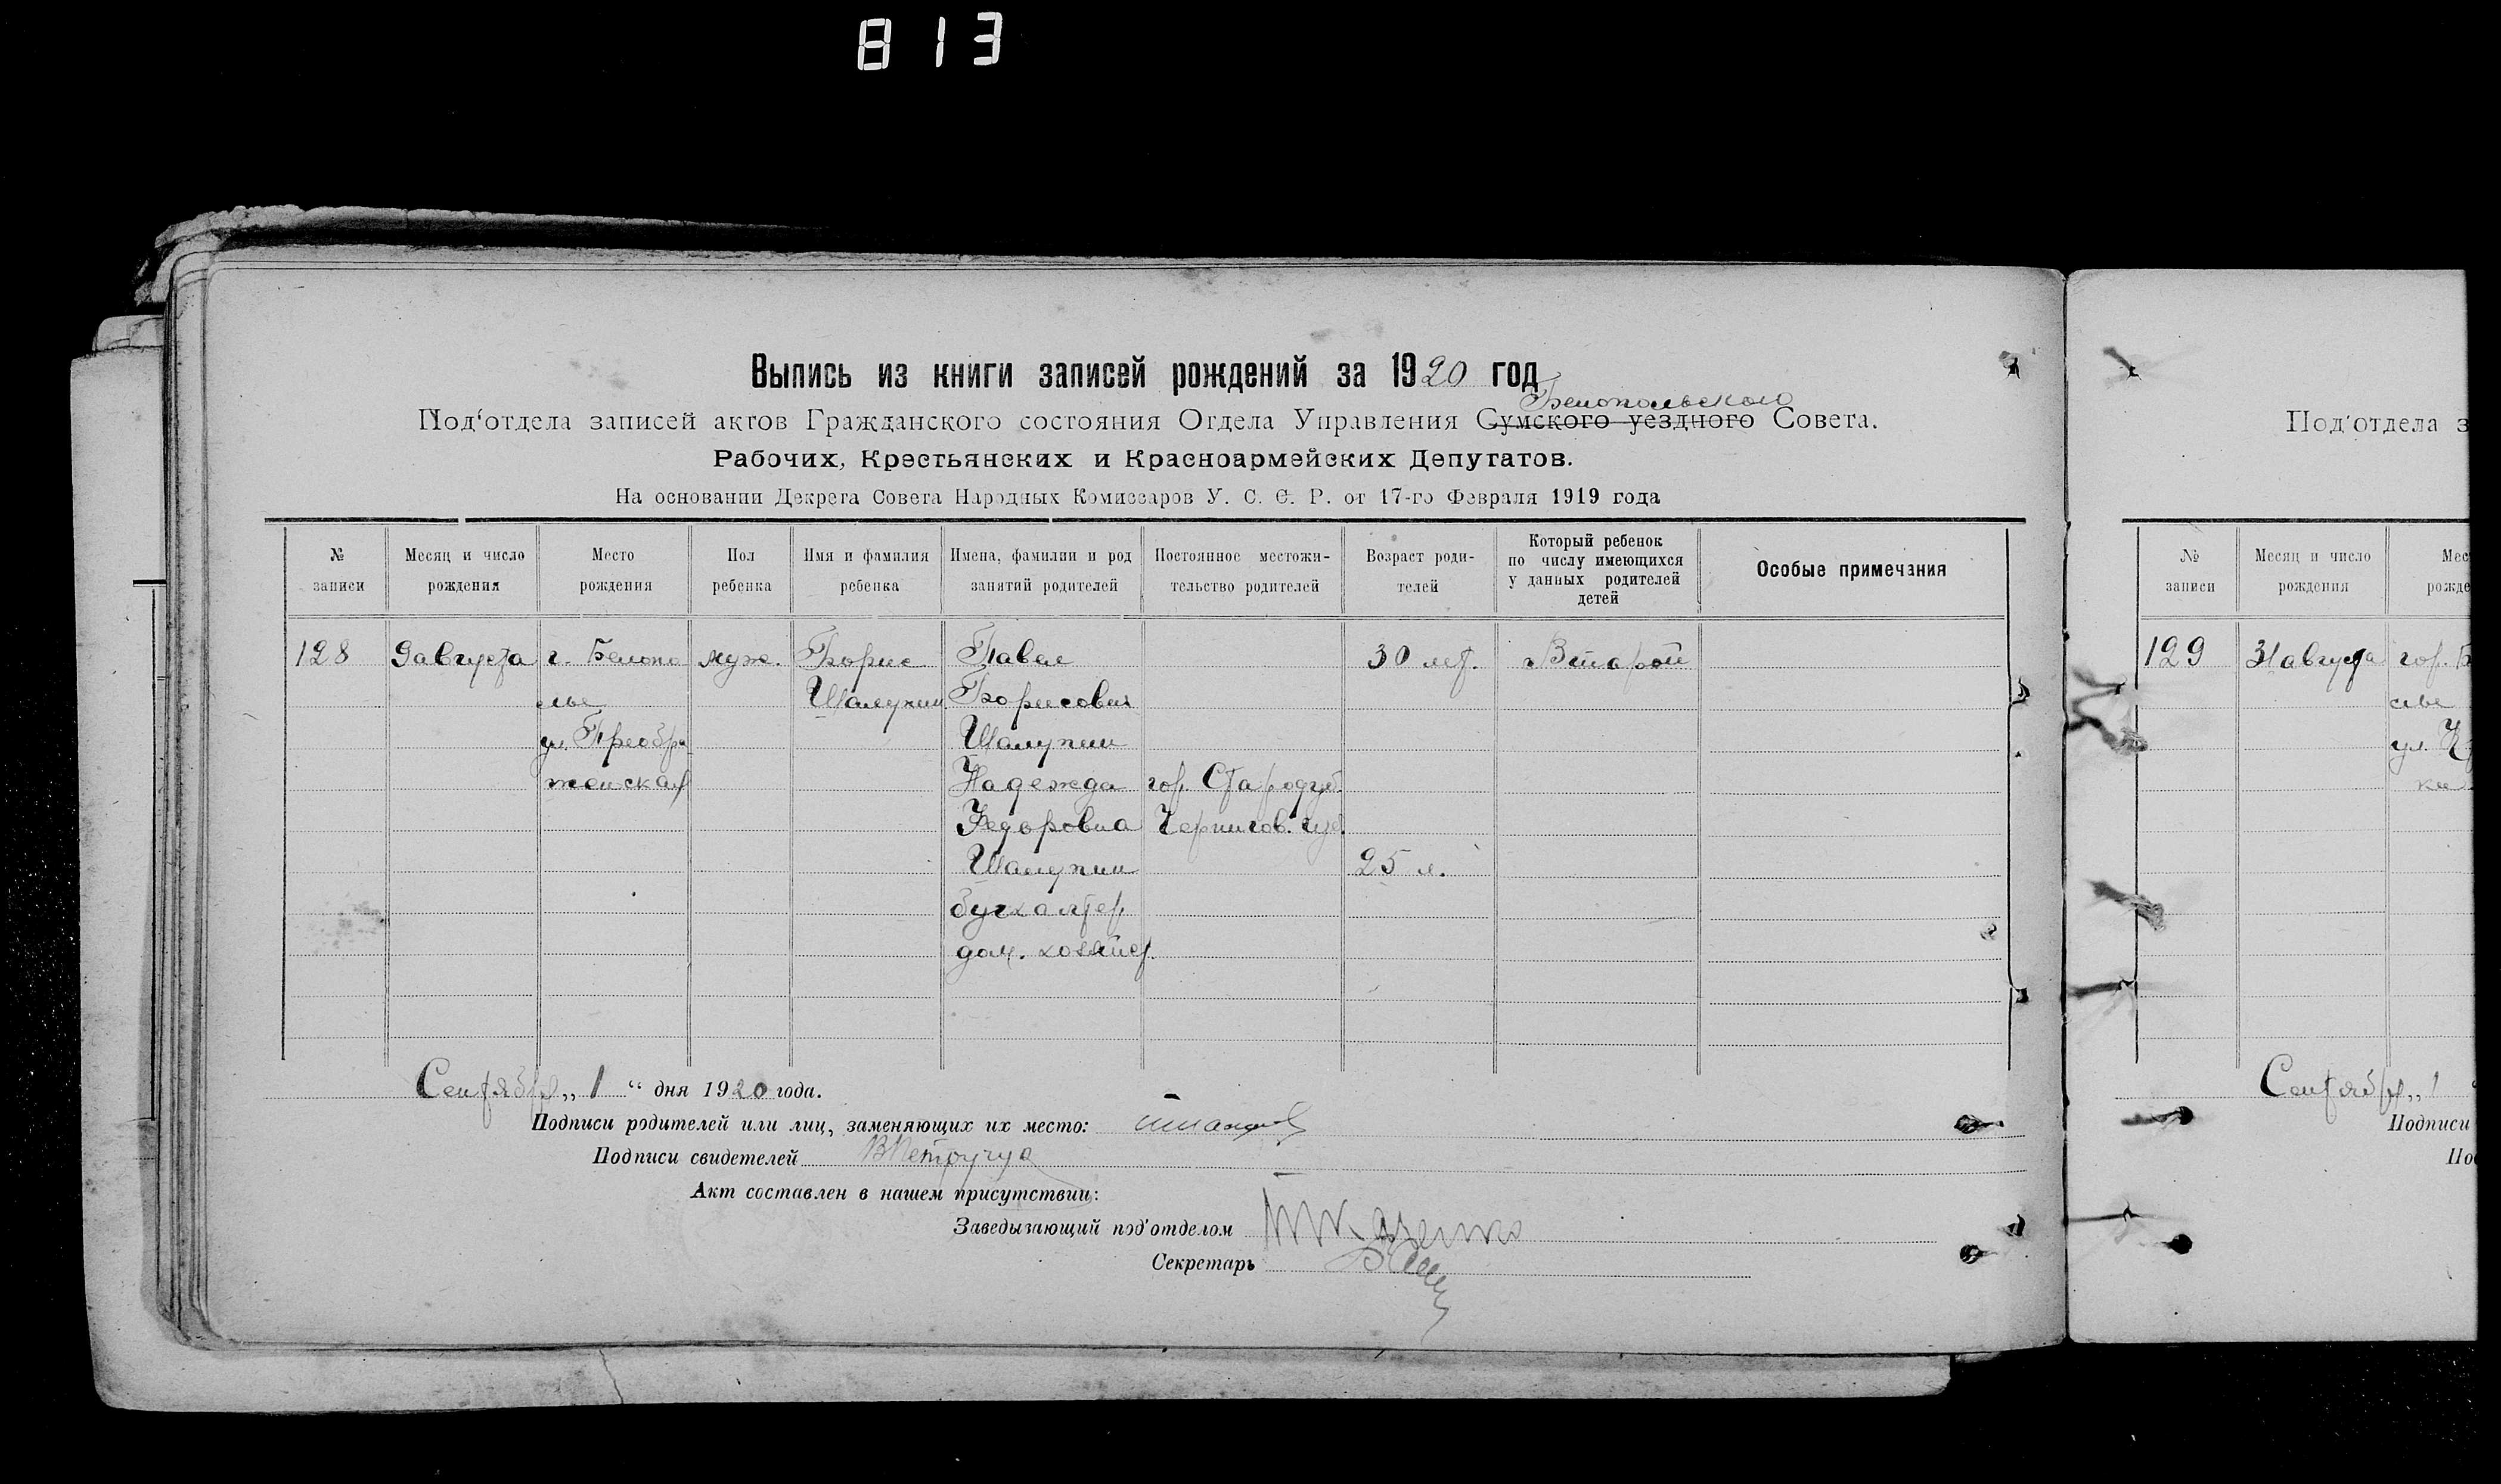 813
Выпись из книги записей рождений за 1920 год
Белопольского
Под‘отдела записей актов Гражданского состояния Отдела Управления Сумского уездного Совета.
Рабочих, Крестьянских и Красноармейских Депутатов.
На основании Декрета Совета Народных Комиссаров У. С. С. Р. от 17-го Февраля 1919 года
№ записи
Месяц и число рождения
Место рождения
Пол ребенка
Имя и фамилия ребенка
Имена, фамилии и род занятий родителей
Постоянное местожительство родителей
Возраст родителей
Который ребенок по числу имеющихся у данных родителей детей
Особые примечания
128 9 августа г. Белопо муж. Борис Павел 30 лет. Второй
лье Шалухин Борисович
ул. Преобра Шалухин
женская Надежда гор. Стародуб.
Федоровна Чернигов. губ.
Шалухин 25 л.
бухгалтер
дом. хозяйст.
Сентября „ 1 “ дня 1920 года.
Подписи родителей или лиц, заменяющих их место:
Подписи свидетелей
Акт составлен в нашем присутствии:
Заведывающий под‘отделом
Секретарь
Под‘отдела з
№ записи
Месяц и число рождения
Мес
рожде
129 31 августа гор. Б
лье
ул.
ки
Сентября „ 1
Подписи
По